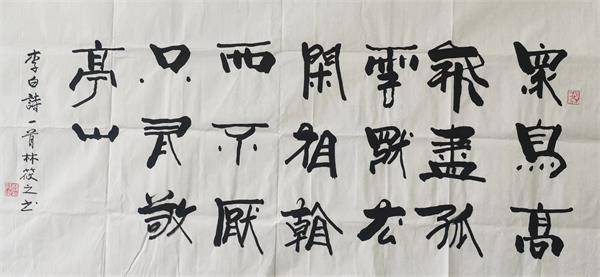 眾鳥高
飛盡孤
雲獨去
閑相看
兩不厭
只有敬
亭山
李白詩一首林筱之书